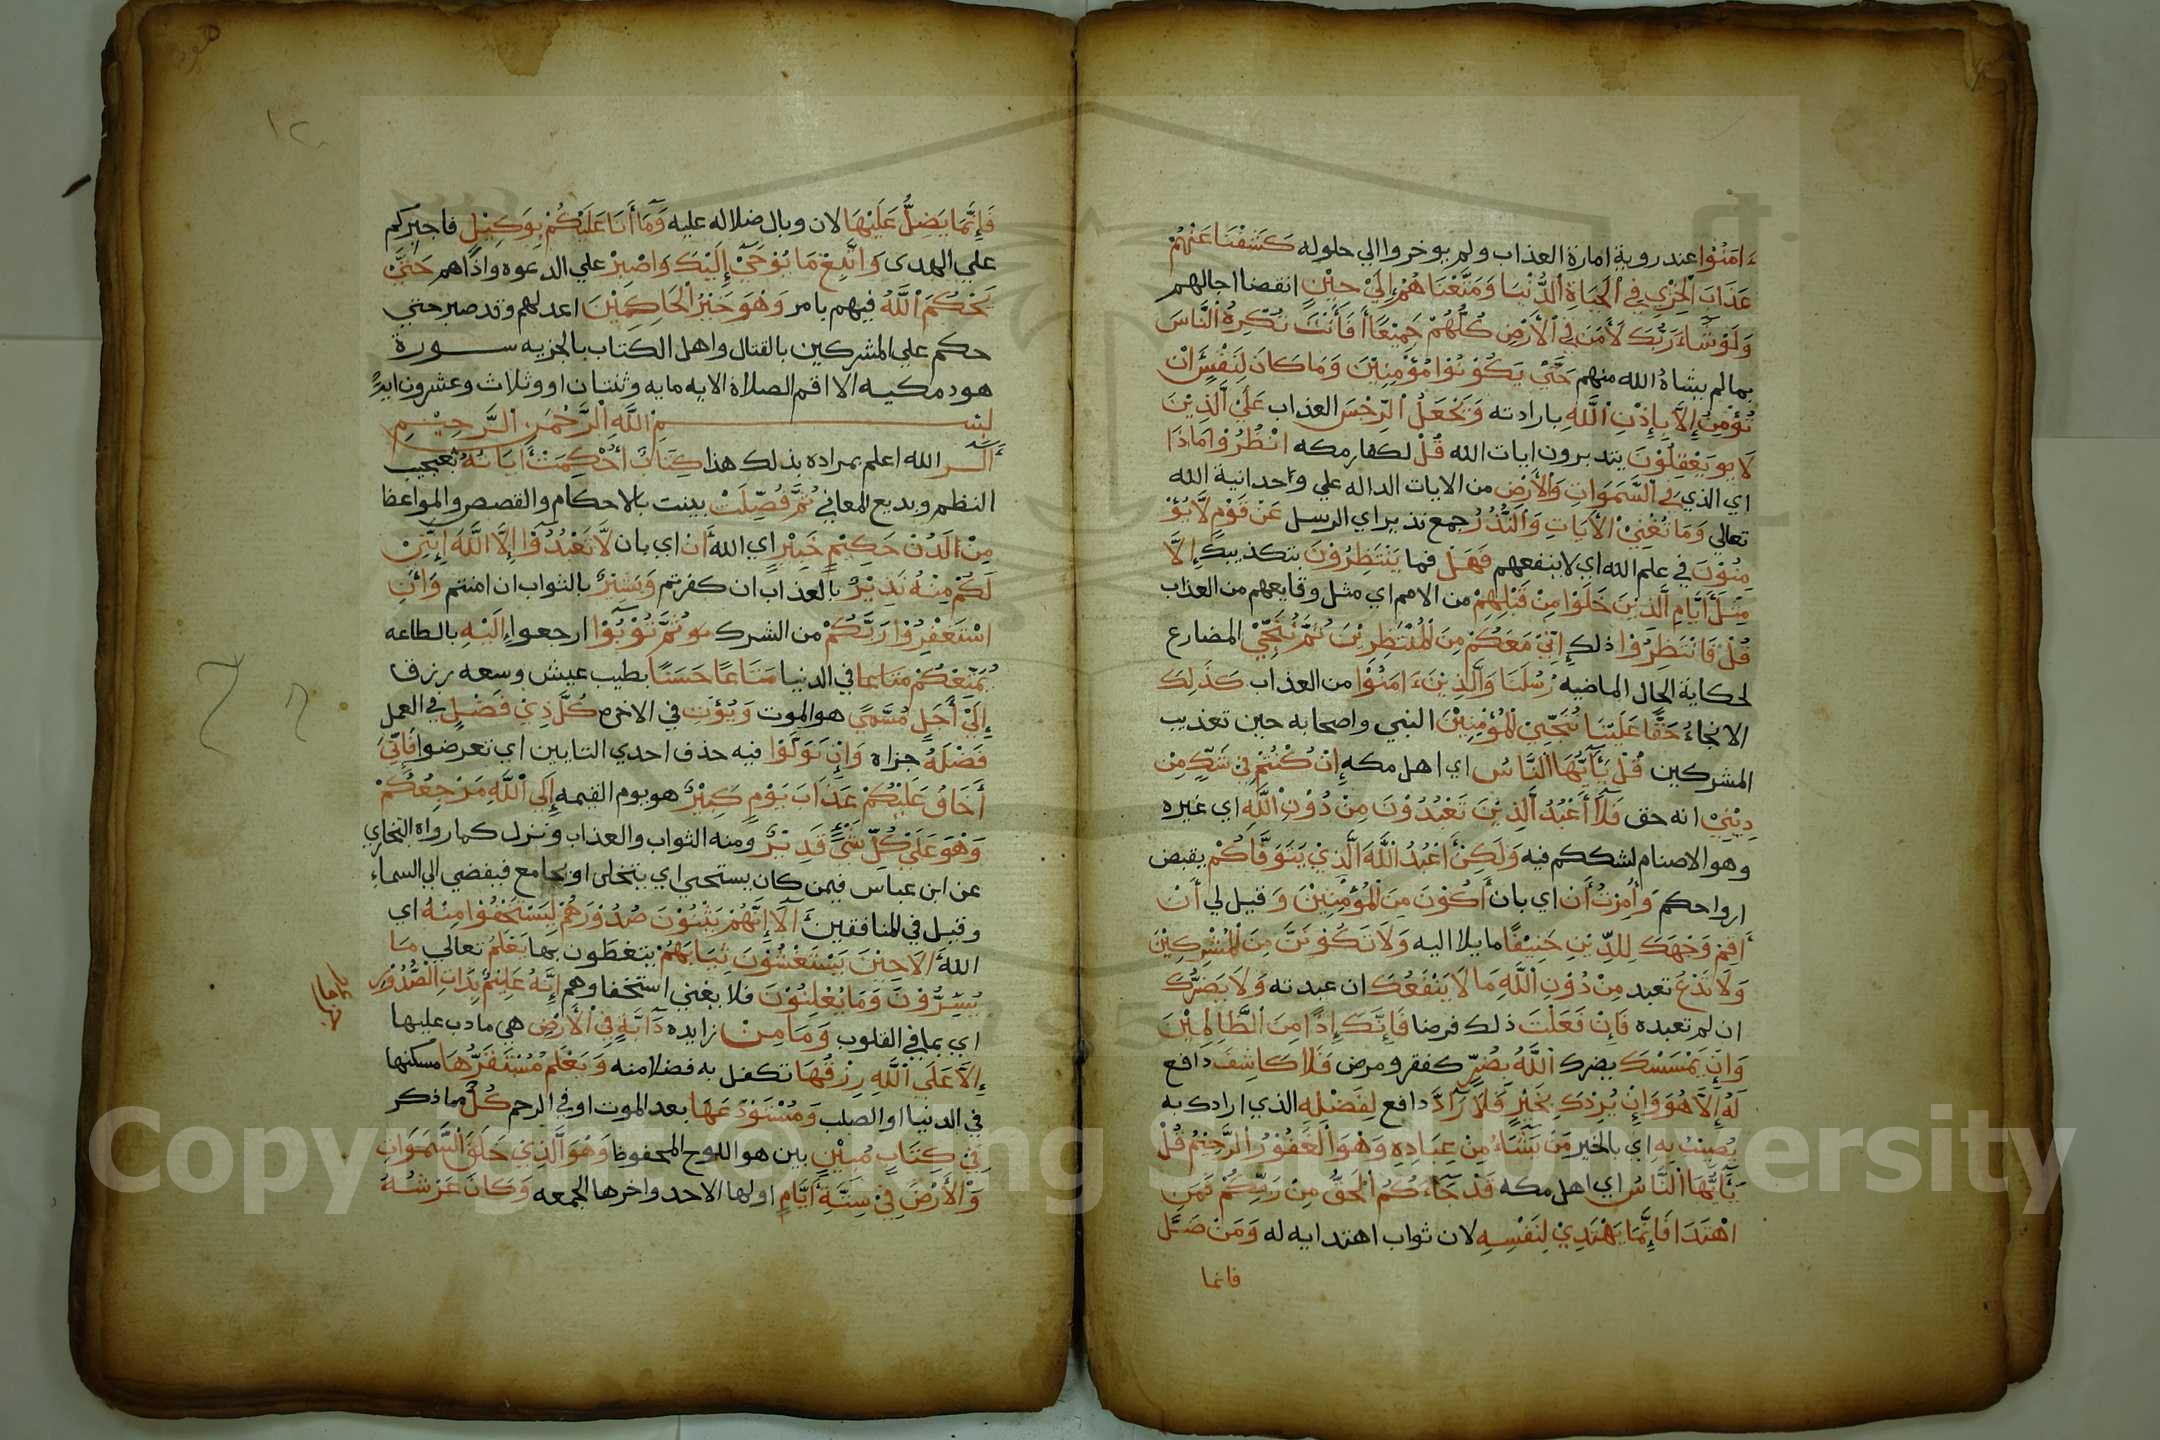 ءَامَنُوْا عند روية امارة العذاب ولم يوخروا الي حلوله كَشَفْنَا عَنْهُمْ
عَذَابَ الْخِزْيِ فِي الْحَيَاةِ الدُّنْيَا وَمَتَّعْنَاهُمْ إِلَيْ حِيْنٍ انقضا اجالهم
وَلَوْ شَاءَ رَبُّكَ لَأَمَنَ مَنْ فِي الْأَرْضِ كُلُّهُمْ جَمِيْعًا أَفَأَنْتَ تُكْرِهُ النَّاسَ
بما لم يشاهُ الله منهم حَتَّيْ يَكُوْنُوْا مُؤْمِنِيْنَ وَمَا كَانَ لِنَفْسٍ أَنْ
تُؤْمِنُ إِلَّا بِإِذْنِ اللَّهِ بارادته وَيَجْعَلُ الرِّجْسَ العذاب عَلَيْ الَّذِيْنَ
لَا يَعْقِلُوْنَ يتدبرون ايات الله قُلْ لكفار مكه انْظُرُوْا مَاذَا
اي الذي فِي السَّمَوَاتِ وَالْأَرْضِ من الايات الداله علي وَاحدانية الله
تعالي وَمَا تُغْنِيْ الْأَيَاتِ وَالنُّذُرُ جمع نذير اي الرسل عَنْ قَوْمٍ لَّا يُؤْ
مِنُوْنَ في علم الله اي لا ينفعهم فَهَلْ فما يَنْتَظِرُوْنَ بتكذيبك إِلَّا
مِثْلَ أَيَّامِ الَّذِيْنَ خَلَوْا مِنْ قَبْلِهِمْ من الامم اي مثل وقايعهم من العذاب
قُلْ فَانْتَظِرُوْا ذلك إِنِّيْ مَعَكُمْ مِنَ الْمُنْتَظِرِيْنَ ثُمَّ نُنَجِّيْ المضارع
لحكاية الحال الماضيه رُسُلَنَا وَالَّذِيْنَ ءَامَنُوْا من العذاب كَذَلِكَ
الانجاءُ حَقًّا عَلَيْنَا نُنَجِّيْ الْمُؤْمِنِيْنَ النبي واصحابه حين تعذيب
المشركين قُلْ يَأَيُّهَا النَّاسُ اي اهل مكه إِنْ كُنْتُمْ فِيْ شَكٍّ مِنْ
دِيْنِيْ انه حق فَلَا أَعْبُدُ الَّذِيْنَ تَعْبُدُوْنَ مِنْ دُوْنِ اللَّهِ اي غيره
وهو الاصنام لشككم فيه وَلَكِنْ أَعْبُدُ اللَّهَ الَّذِيْ يَتَوَفَّاكُمْ يقبض
ارواحكم وَأُمِرْتُ أَن اي بان أَكُوْنَ مِنَ الْمُؤْمِنِيْنَ وَقيل لي أَنْ
أَقِمْ وَجْهَكَ لِلدِّيْنِ حَنِيْفًا مايلا اليه وَلَا تَكُوْنَنَّ مِنَ الْمُشْرِكِيْنَ
وَلَا تَدْعُ تعبد مِنْ دُوْنِ اللَّهِ مَا لَا يَنْفَعُكَ ان عبدته وَلَا يَضُرُّكَ
ان لم تعبده فَإِنْ فَعَلْتَ ذلك فرضا فَإِنَّكَ إِذًا مِنَ الظَّالِمِيْنَ
وَإِنْ يَمْسَسْكَ يضرك اللَّهُ بِضُرٍّ كفقر ومرض فَلَا كَاشِفَ دافع
لَهُ إِلَّا هُوَ وَإِنْ يُرِدْكَ بِخَيْرٍ فَلَا رَآدَّ دافع لِفَضْلِهِ الذي ارادك به
يُصِيْبُ بِهِ اي بالخير مَنْ يَشَاءُ مِنْ عِبَادِهِ وَهُوَ الْغَفُوْرُ الرَّحِيْمُ قُلْ
يَأَيُّهَا النَّاسُ اي اهل مكه قَدْ جَآءَكُمُ الْحَقُّ مِنْ رَبِّكُمْ فَمَنِ
اهْتَدَا فَإِنَّمَا يَهْتَدِيْ لِنَفْسِهِ لان ثواب اهتدايه له وَمَنْ ضَلَّ
فانما
هود
١٢
فَإِنَّمَا يَضِلُّ عَلَيْهَا لان وبال ضلاله عليه وَمَا أَنَا عَلَيْكُمْ بِوَكِيْلٍ فاجبركم
علي الهدى وَاتَّبِعْ مَا يُوْحَيْ إِلَيْكَ وَاصْبِرْ علي الدعوه واذاهم حَتَّيْ
يَحْكُمَ اللَّهُ فيهم بامر وَهُوَ خَيْرُ الْحَاكِمِيْنَ اعدلهم وقد صبر حتي
حكم علي المشركين بالقتال واهل الكتاب بالجزيه سورة
هود مكيه الا اقم الصلاة الايه مايه وثنتان او وثلاث وعشرون ايةً
بِسْمِ اللَّهِ الرَّحْمَنِ الرَّحِيْمِ
الر الله اعلم بمراده بذلك هذا كِتَابٌ أُحْكِمَتْ أَيَاتُهُ بعجيب
النظم وبديع المعاني ثُمَّ فُصِّلَتْ بينت بالاحكام والقصص والمواعظ
مِنْ لَدُنْ حَكِيْمٍ خَبِيْرٍ اي الله أَن اي بان لَّا تَعْبُدُوْا إِلَّا اللَّهَ إِنَّنِيْ
لَكُمْ مِنْهُ نَذِيْرٌ بالعذاب ان كفرتم وَبَشِيْرٌ بالثواب ان امنتم وَأَنِ
اسْتَغْفِرُوْا رَبَّكُمْ من الشرك ثُمَّ تُوْبُوْا ارجعوا إِلَيْهِ بالطاعه
يُمَتِّعْكُمْ في الدنيا مَتَاعًا حَسَنًا بطيب عيش وسعه رزق
إِلَيْ أَجَلٍ مُسَمًّي هو الموت وَيُؤْتِ في الاخره كُلَّ ذِيْ فَضْلٍ في العمل
فَضْلَهُ جزاه وَإِنْ تَوَلَّوْا فيه حذف احدي التايين اي تعرضوا فَإِنِّيَ
أَخَافُ عَلَيْكُمْ عَذَابَ يَوْمٍ كَبِيْرٍ هو يوم القيمه إِلَى اللَّهِ مَرْجِعُكُمْ
وَهُوَ عَلَيْ كُلِّ شَيْءٍ قَدِيْرٌ ومنه الثواب والعذاب ونزل كما رواه البخاري
عن ابن عباس فيمن كان يستحيي اي يتخلى او يجامع فيفضي الي السماء
وقيل في المنافقين أَلَا إِنَّهُمْ يَثْنُوْنَ صُدُوْرَهُمْ لِيَسْتَخْفُوْا مِنْهُ اي
الله أَلَا حِيْنَ يَسْتَغْشُوْنَ ثِيَابَهُمْ يتغطون بها يَعْلَمُ تعالي مَا
يُسِرُّوْنَ وَمَا يُعْلِنُوْنَ فلا يغني استخفاوهم إِنَّهُ عَلِيْمٌ بِذَاتِ الصُّدُوْرِ
اي بما في القلوب وَمَا مِنْ زايده دَآبَّةٍ فِيْ الْأَرْضِ هي ما دب عليها
إِلَّا عَلَى اللَّهِ رِزْقُهَا تكفل به فضلا منه وَيَعْلَمُ مُسْتَقَرَّهَا مسكنها
في الدنيا او الصلب وَمُسْتَوْدَعَهَا بعد الموت او في الرحم كُلٌّ مما ذكر
فِيْ كِتَابٍ مُبِيْنٍ بين هو اللوح المحفوظ وَهُوَ الَّذِيْ خَلَقَ السَّمَوَاتِ
وَالْأَرْضَ فِيْ سِتَّةِ أَيَّامٍ اولها الاحد واخرها الجمعه وَكَانَ عَرْشُهُ
Copyright © King Saud University